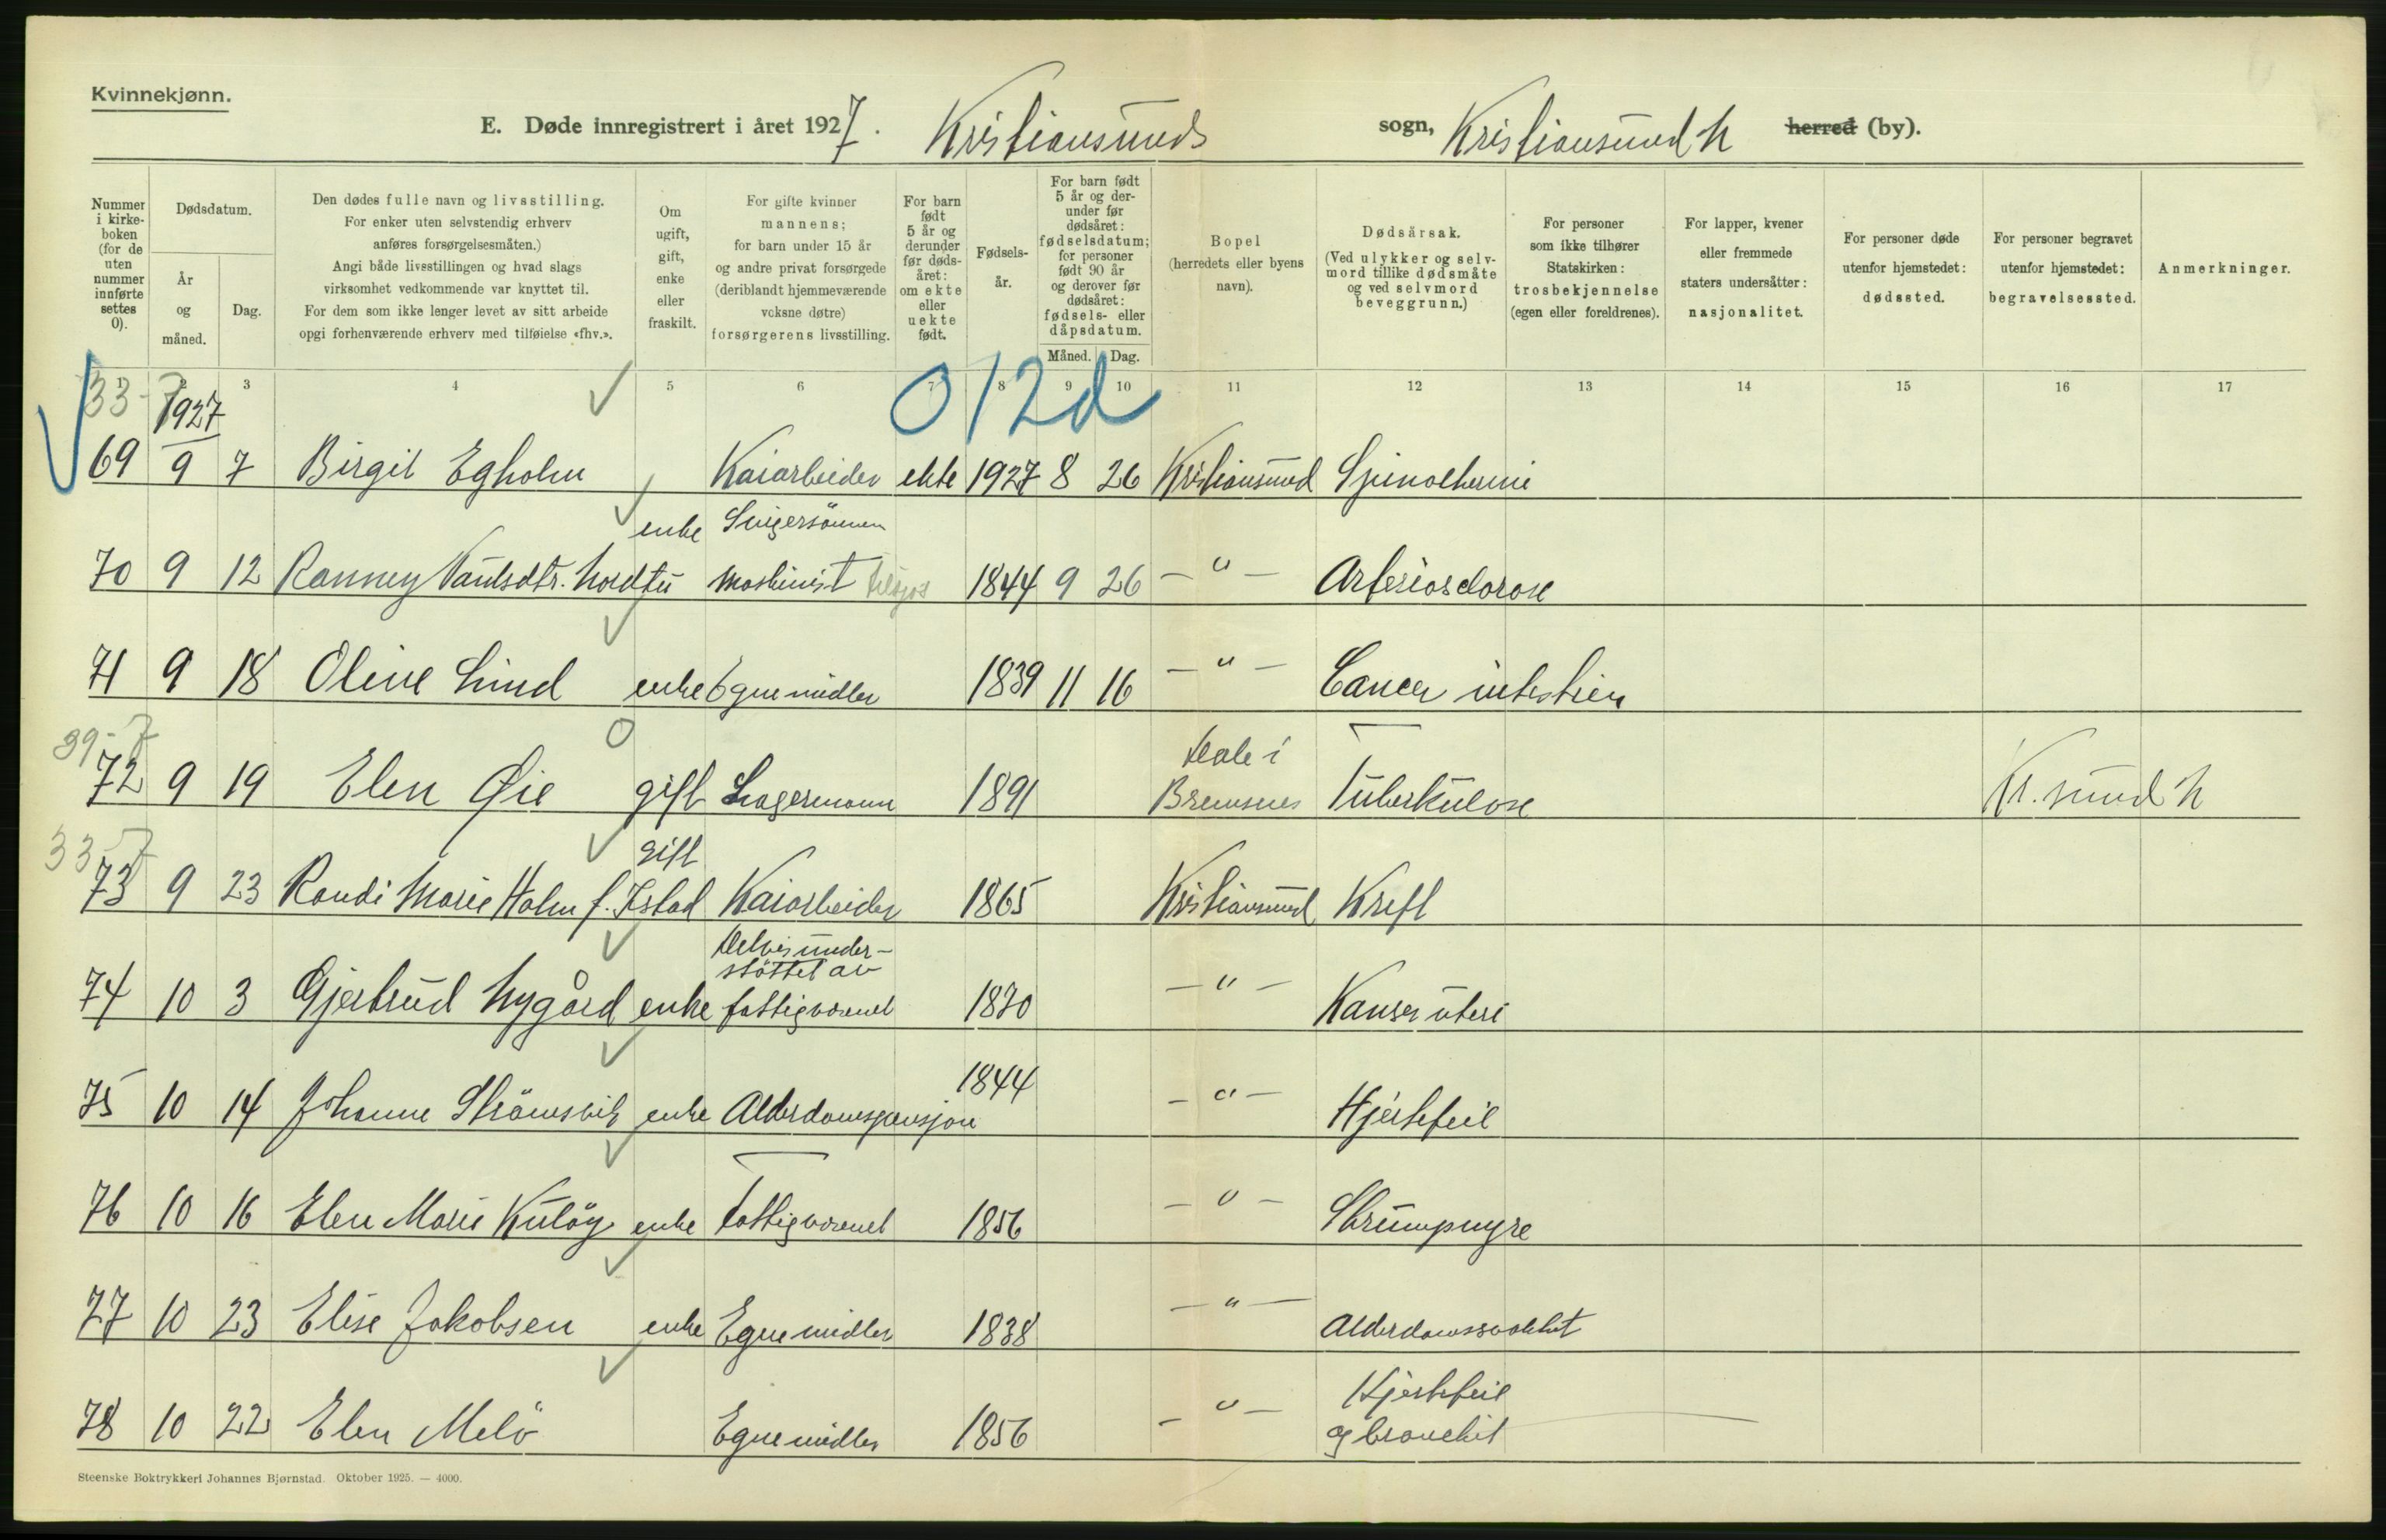 Kvinnekjønn.
E. Døde innregistrert i året 1927. Kristiansunds sogn, Kristiansund N herred (by).
Nummer i kirkeboken (for de uten nummer innførte settes 0).
Dødsdatum.
År og måned.
Dag.
Den dødes fulle navn og livsstilling.
For enker uten selvstendig erhverv
anføres forsørgelsesmåten.)
Angi både livsstillingen og hvad slags
virksomhet vedkommende var knyttet til.
For dem som ikke lenger levet av sitt arbeide
opgi forhenværende erhverv med tilføielse «fhv.».
Om ugift, gift, enke eller fraskilt.
For gifte kvinner
mannens;
for barn under 15 år
og andre privat forsørgede
(deriblandt hjemmeværende
voksne døtre)
forsørgerens livsstilling.
For barn født 5 år og derunder før dødsåret: om ekte eller uekte født.
Fødselsår.
For barn født 5 år og derunder før dødsåret: fødselsdatum; for personer født 90 år og derover før dødsåret: fødsels- eller dåpsdatum.
Måned. Dag.
Bopel
(herredets eller byens
navn).
Dødsårsak.
(Ved ulykker og selvmord tillike dødsmåte og ved selvmord beveggrunn.)
For personer
som ikke tilhører
Statskirken:
trosbekjennelse
(egen eller foreldrenes).
For lapper, kvener
eller fremmede
staters undersåtter:
nasjonalitet.
For personer døde
utenfor hjemstedet:
dødssted.
For personer begravet
utenfor hjemstedet:
begravelsessted.
Anmerkninger.
1 2 3 4 5 6 7 8 9 10 11 12 13 14 15 16 17
33-7 1927 0/12d
69 9 7 Birgit Egholm Kaiarbeider ekte 1927 8 26 Kristiansund
enke Svigersönnen
70 9 12 Ranney Paulsdtr. Nordtu maskinist tilsjøs 1844 9 26 - " - Arteriosclorose
71 9 18 Oline Lind enke Egne midler 1839 11 16 - " - Cancer intestin
39-7
72 9 19 Elen Øie gift Lagermann 1891 Dale i Bremsnes Tuberkulose Kr.sund N
33-7 gift
73 9 23 Randi Marie Holm f. Istad Kaiarbeider 1865 Kristiansund Kreft
Delvis under-
støttet av
74 10 3 Gjertrud Nygård enke fattigvæsenet 1870 - " - Kanser uteri
75 10 14 Johanne Strömsvik enke Alderdomspensjon 1844 - " - Hjertefeil
76 10 16 Elen Marie Kulöy enke Fattigvæsenet 1856 - " - Skrumpnyre
77 10 23 Elise Jakobsen enke Egne midler 1838 - " - Alderdomssvakhet
78 10 22 Elen Melö Egne midler 1856 - " - Hjertefeil
og bronchit
Steenske Boktrykkeri Johannes Bjørnstad. Oktober 1925. — 4000.